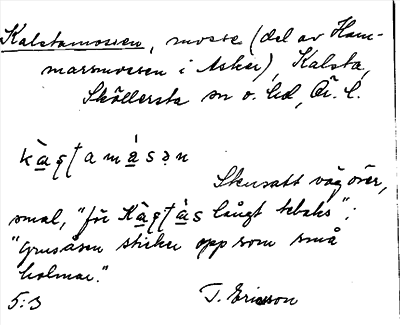 Kalstamossen, mosse (del av Ham-
marsmossen i Asker), Kalsta,
Sköllersta sn o. hd, Ör. l.
Stensatt väg över,
smal, "för långt tebaks";
"grusåsen sticker opp som små
holmar."
5:3 T. Ericsson